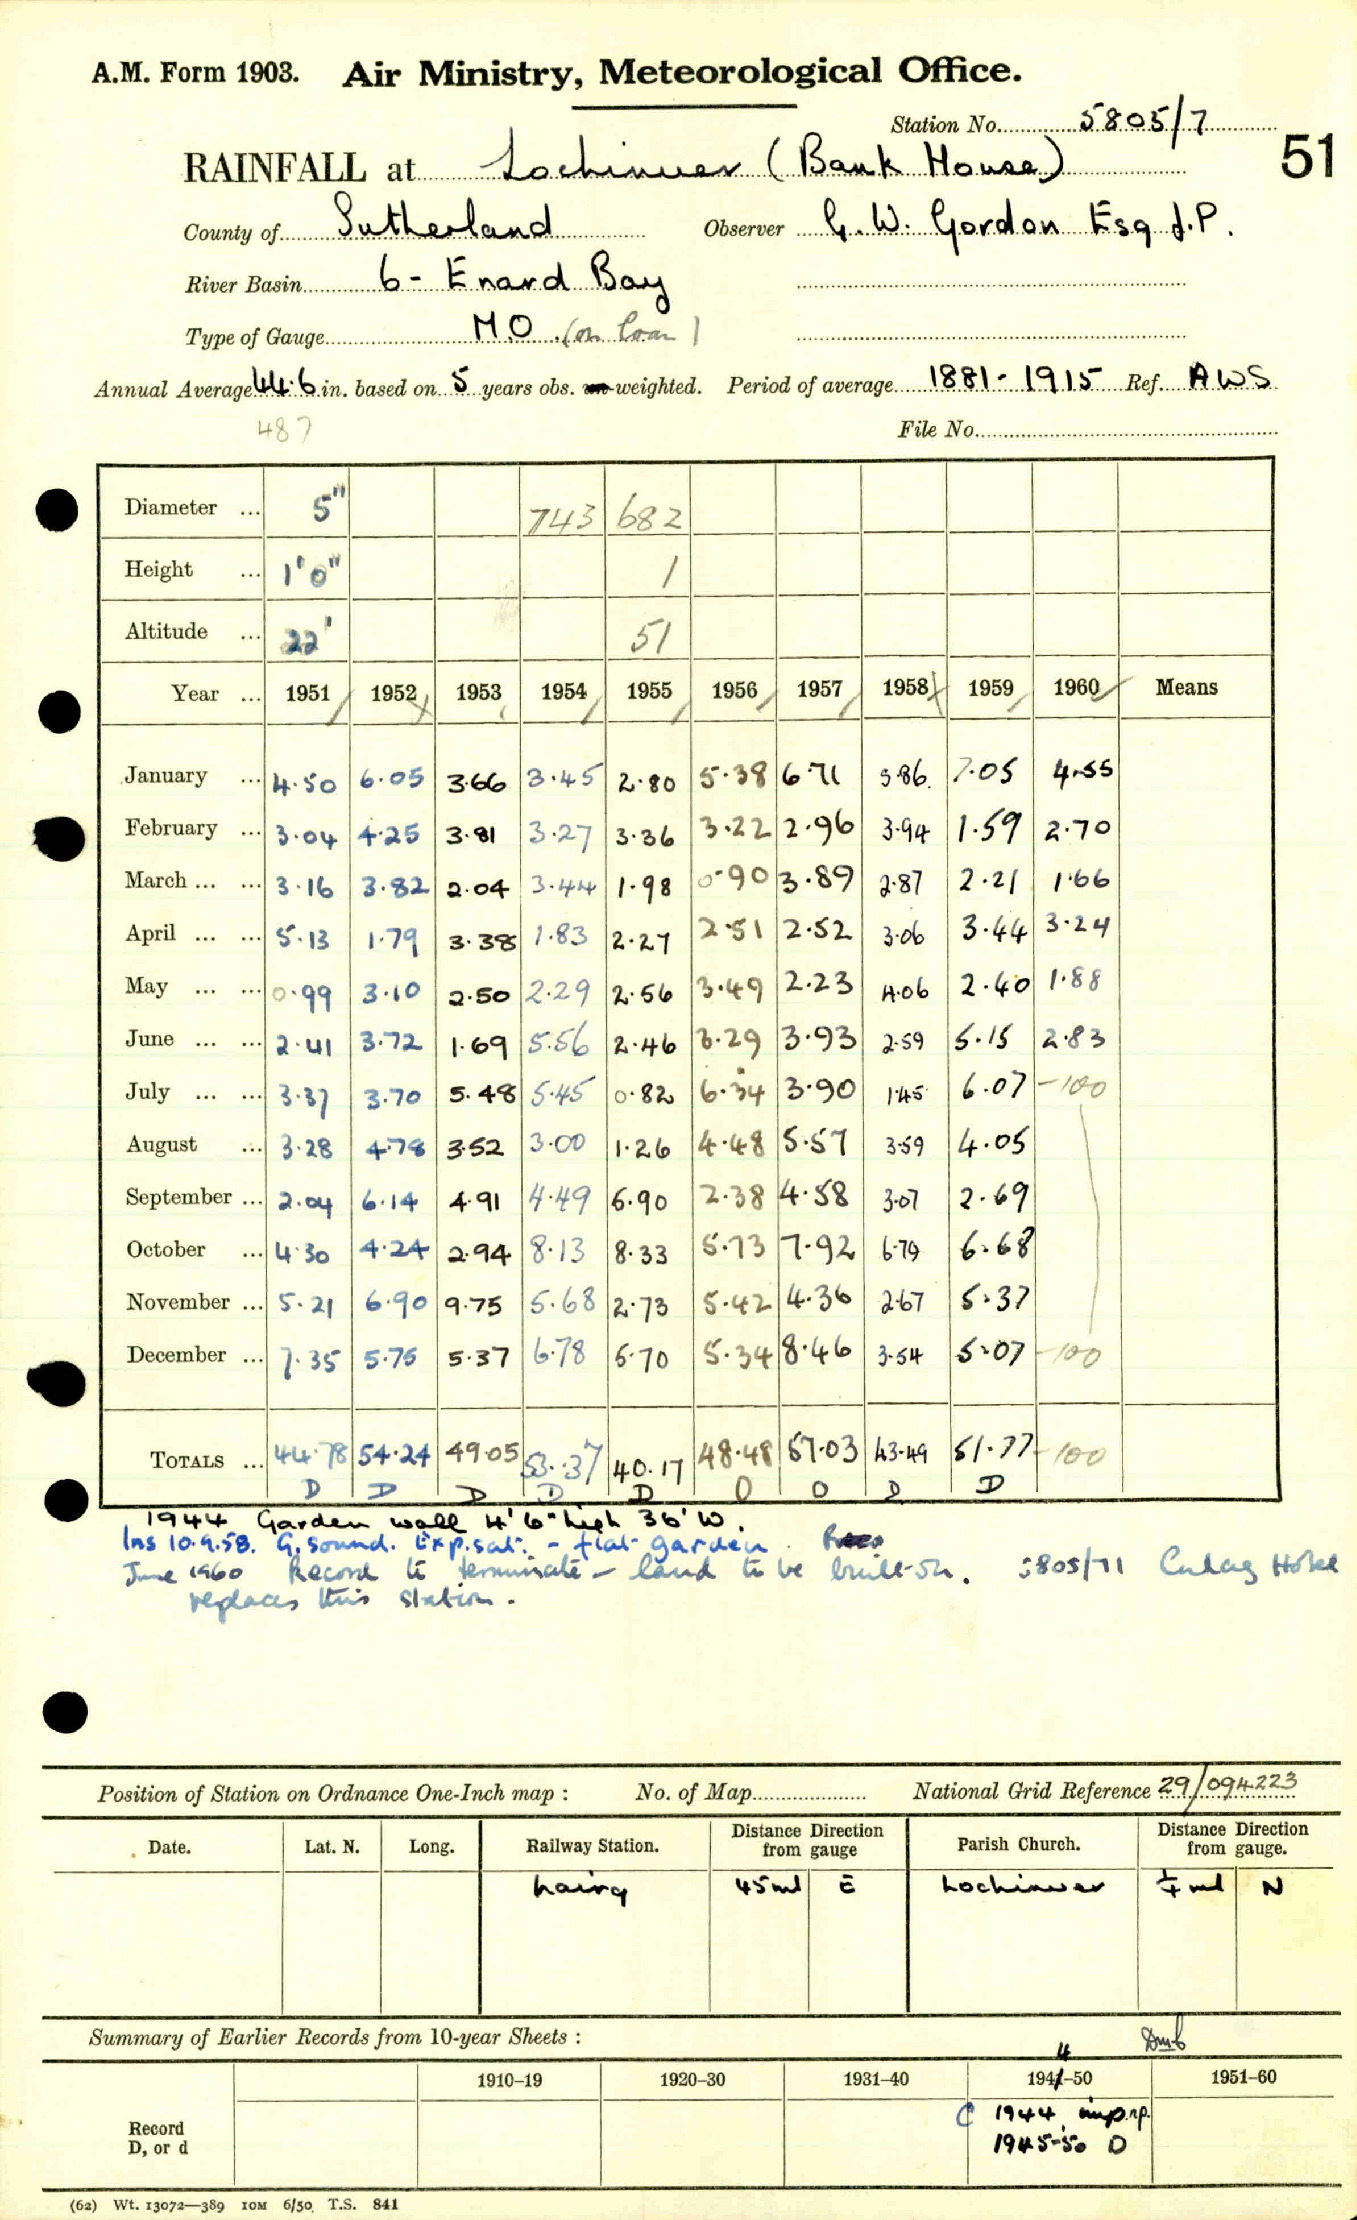 A.M. Form 1903. Air Ministry, Meteorological Office.
Station No. 5805/7
51
RAINFALL at Lochinver (Bank House)
County of Sutherland Observer G. W. Gordon Esq J.P.
River Basin 6 - Enard Bay
Type of Gauge M.O. (on loan)
Annual Average 44.6 in. based on 5 years obs. weighted. Period of average 1881-1915 Ref. AWS
487 File No.
Diameter ... 5" 743 682
Height ... 1'0" 1
Altitude ... 22' 51
Year ... 1951 1952 1953 1954 1955 1956 1957 1958 1959 1960 Means
January ... 4.50 6.05 3.66 3.45 2.80 5.38 6.71 5.86 7.05 4.55
February ... 3.04 4.25 3.81 3.27 3.36 3.22 2.96 3.94 1.59 2.70
March ... ... 3.16 3.82 2.04 3.44 1.98 0.90 3.89 2.87 2.21 1.66
April ... ... 5.13 1.79 3.38 1.83 2.27 2.51 2.52 3.06 3.44 3.24
May ... ... 0.99 3.10 2.50 2.29 2.56 3.49 2.23 4.06 2.40 1.88
June ... ... 2.41 3.72 1.69 5.56 2.46 3.29 3.93 2.59 5.15 2.83
July ... ... 3.37 3.70 5.48 5.45 0.82 6.34 3.90 1.45 6.07 -100
August ... 3.28 4.78 3.52 3.00 1.26 4.48 5.57 3.59 4.05
September ... 2.04 6.14 4.91 4.49 5.90 2.38 4.58 3.07 2.69
October ... 4.30 4.24 2.94 8.13 8.33 5.73 7.92 6.79 6.68
November ... 5.21 6.90 9.75 5.68 2.73 5.42 4.36 2.67 5.37
December ... 7.35 5.75 5.37 6.78 5.70 5.34 8.46 3.54 5.07 -100
TOTALS ... 44.78 54.24 49.05 53.37 40.17 48.48 57.03 43.49 51.77 -100
D D D D D D D D D
1944 Garden wall 4'6" high 36' W.
Ins 10.9.58. G. sound. Exp. sat. - flat garden.
June 1960 Record to terminate - land to be built on. 5805/71 Culag Hotel
replaces this station.
Position of Station on Ordnance One-Inch map : No. of Map National Grid Reference 29/094223
Date. Lat. N. Long. Railway Station. Distance Direction from gauge Parish Church. Distance Direction from gauge.
Lairg 45 ml E Lochinver ¼ ml N
Summary of Earlier Records from 10-year Sheets :
4
1910–19 1920–30 1931–40 1941–50 1951–60
Record
D, or d
C 1944 imp. n.p.
1945-50 D
(62) Wt. 13072—389 10M 6/50 T.S. 841